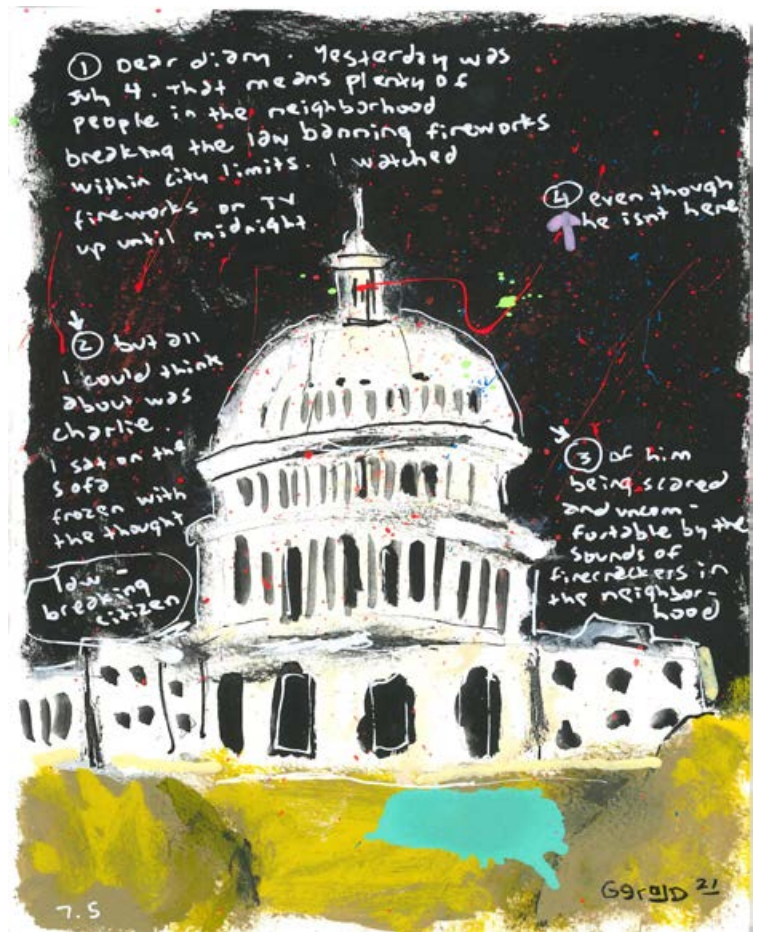 1 Dear diary. Yesterday was
July 4. That means plenty of
people in the neighborhood
breaking the law banning fireworks
within city limits. I watched
fireworks on TV
up until midnight
2 but all
I could think
about was
charlie.
I sat on the
sofa
frozen with
the thought
3 of him
being scared
and uncom-
fortable by the
sounds of
firecrackers in
the neighbor-
hood
4 even though
he isnt here
law-
breaking
citizen
7.5
Gerald 21